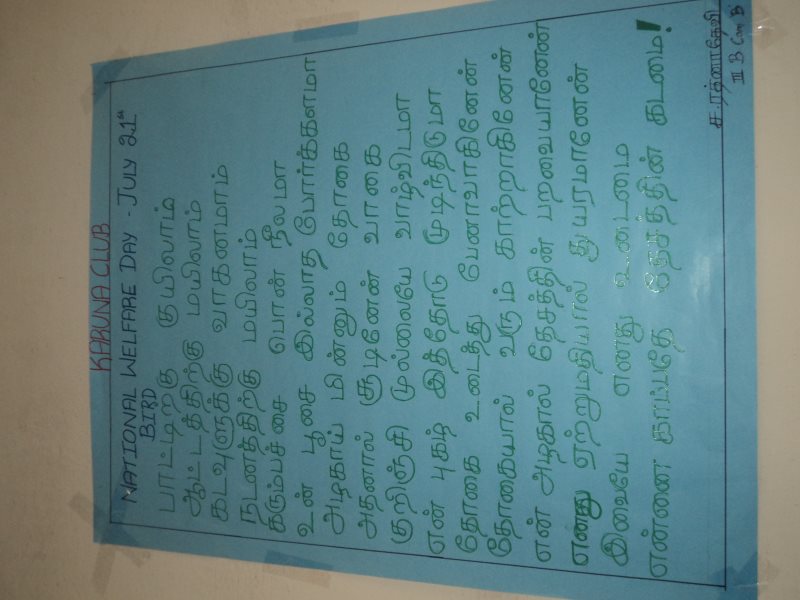 KARUNA CLUB
NATIONAL WELFARE DAY - JULY 21st
BIRD
பாட்டிற்கு குயிலாம்
ஆட்டத்திற்கு மயிலாம்
கடவுளுக்கு வாகணமாம்
நடனத்திற்கு மயிலாம்
கரும்பச்சை பொன் நீலமா
உன் பூசை இல்லாத போர்க்களமா
அழகாய் மின்னும் தோகை
அதனால் சூடினேன் வாகை
குறிஞ்சி முல்லையே வாழ்விடமா
என் புகழ் இத்தோடு முடிந்திடுமா
தோகை உடைத்து பேனாவாகினேன்
தோகையால் வரும் காற்றாகினேன்
என் அழகால் தேசத்தின் பறவையானேன்
எனது ஏற்றுமதியால் துயரமானேன்
இவையே எனது உடைமை
என்னை காப்பதே தேசத்தின் கடமை!
ச.ரத்னாதேவி
III B Com 'B'